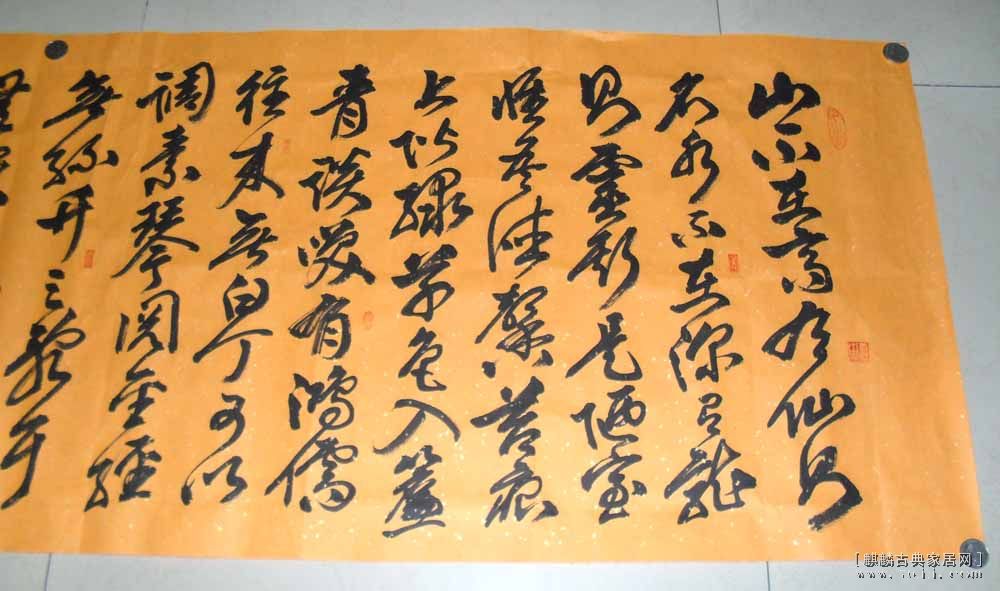 山不在高有仙则
名水不在深有龍
则靈斯是陋室
惟吾德馨苔痕
上阶绿草色入簾
青谈笑有鴻儒
往来無白丁可以
调素琴阅金經
無絲竹之亂耳
[麒麟古典家居网]